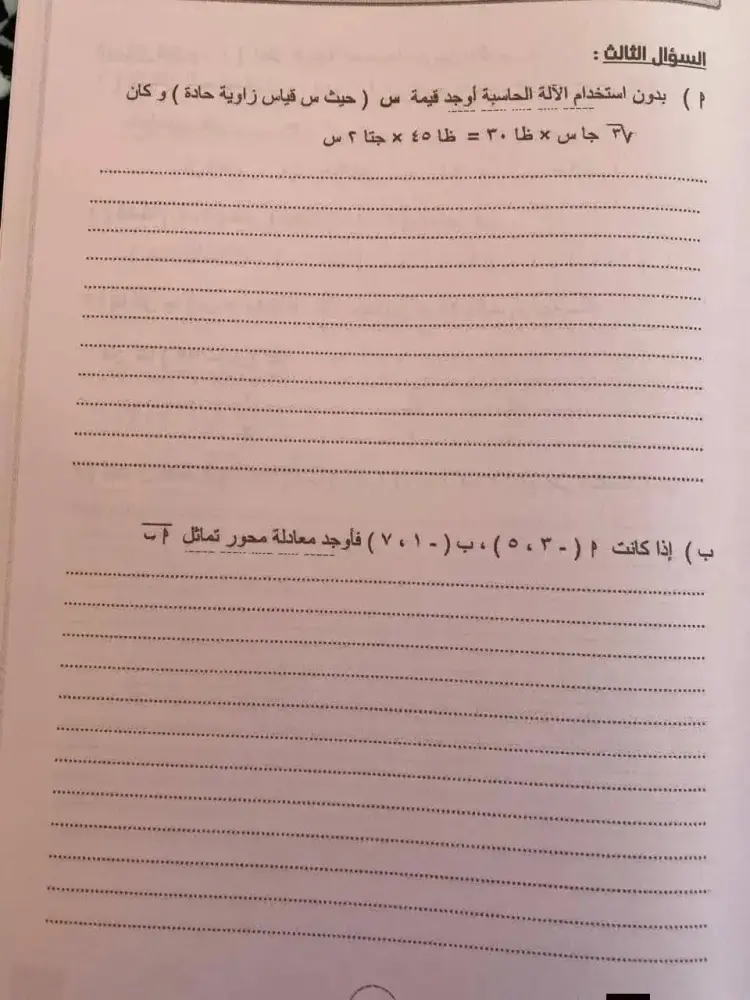 السؤال الثالث :
أ ) بدون استخدام الآلة الحاسبة أوجد قيمة س ( حيث س قياس زاوية حادة ) و كان
√٣ جا س × ظا ٣٠ = ظا ٤٥ × جتا ٢ س
ب ) إذا كانت أ ( - ٣ ، ٥ ) ، ب ( - ١ ، ٧ ) فأوجد معادلة محور تماثل أ ب